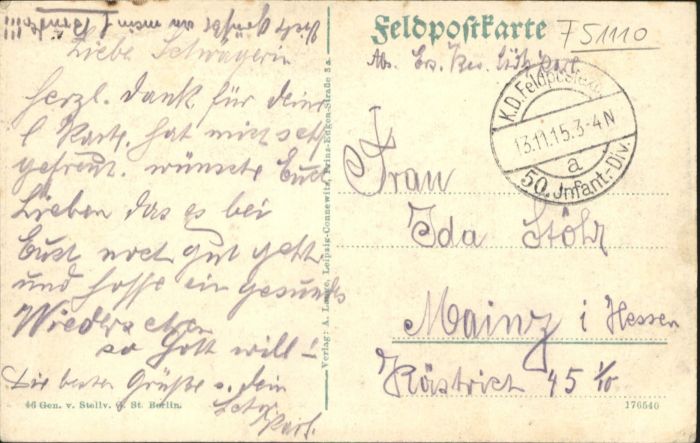 Feldpostkarte
75 1110
Abs. Ers. Res.
K.D. Feldpostexp.
13.11.15.3-4N
a
50. Infant.-Div.
Liebe Schwägerin
herzl. Dank für deine
l Karte, hat mich sehr
gefreut. wünsche Euch
Lieben das es bei
Euch noch gut geht
und hoffe ein gesundes
Wiedersehen
so Gott will!
Die besten Grüße v. dein
Karl.
Frau
Ida Stöhr
Mainz i Hessen
Kästrich 45 1/10
Verlag: A. Lange, Leipzig-Connewitz, Prinz-Eugen-Straße 3a.
46 Gen. v. Stellv. G. St. Berlin.
176540